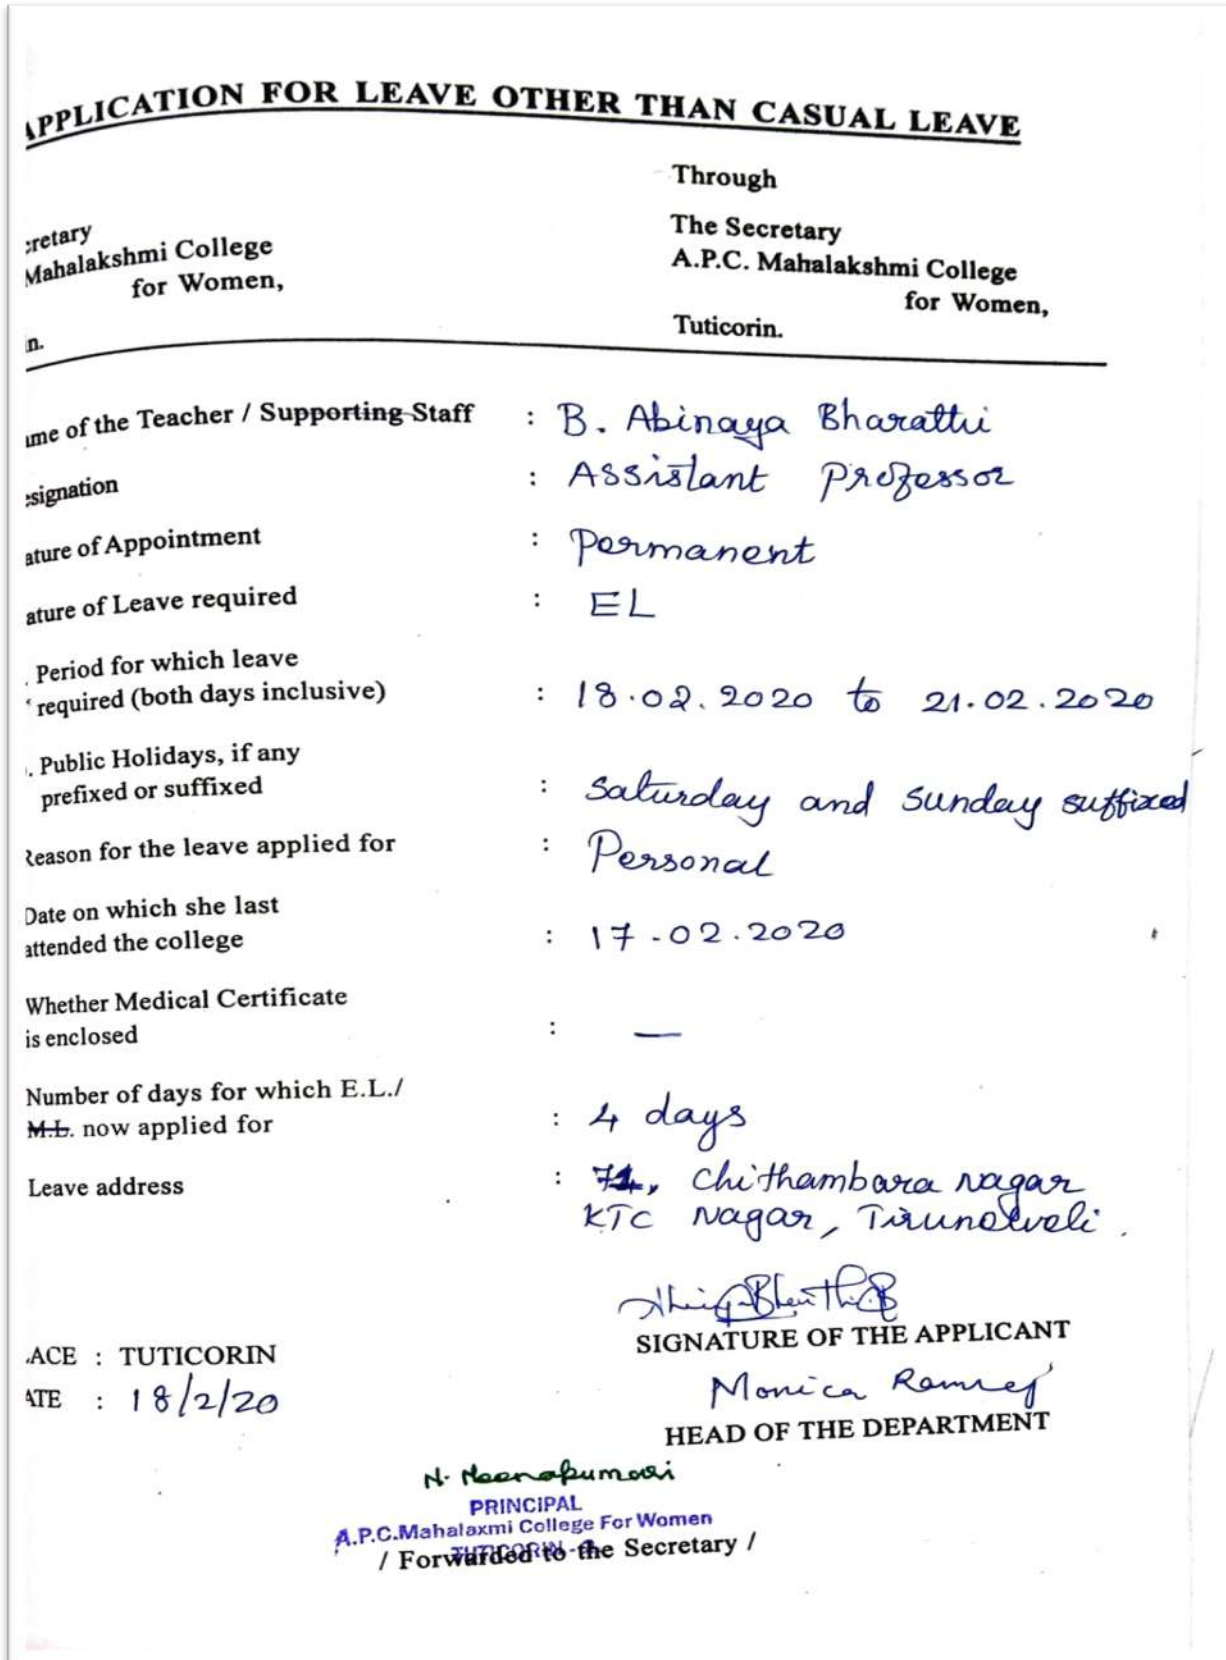 APPLICATION FOR LEAVE OTHER THAN CASUAL LEAVE
Through
cretary
Mahalakshmi College
for Women,
n.
The Secretary
A.P.C. Mahalakshmi College
for Women,
Tuticorin.
ame of the Teacher / Supporting Staff : B. Abinaya Bharathi
esignation : Assistant Professor
ature of Appointment : Permanent
ature of Leave required : EL
. Period for which leave
required (both days inclusive) : 18.02.2020 to 21.02.2020
. Public Holidays, if any
prefixed or suffixed : Saturday and Sunday suffixed
Reason for the leave applied for : Personal
Date on which she last
attended the college : 17-02.2020
Whether Medical Certificate
is enclosed : —
Number of days for which E.L./
M.L. now applied for : 4 days
Leave address : 71, Chithambara Nagar
KTC Nagar, Tirunelveli.
SIGNATURE OF THE APPLICANT
ACE : TUTICORIN
ATE : 18/2/20
Monica
HEAD OF THE DEPARTMENT
N. Meenakumari
PRINCIPAL
A.P.C.Mahalaxmi College For Women
TUTICORIN -
/ Forwarded to the Secretary /